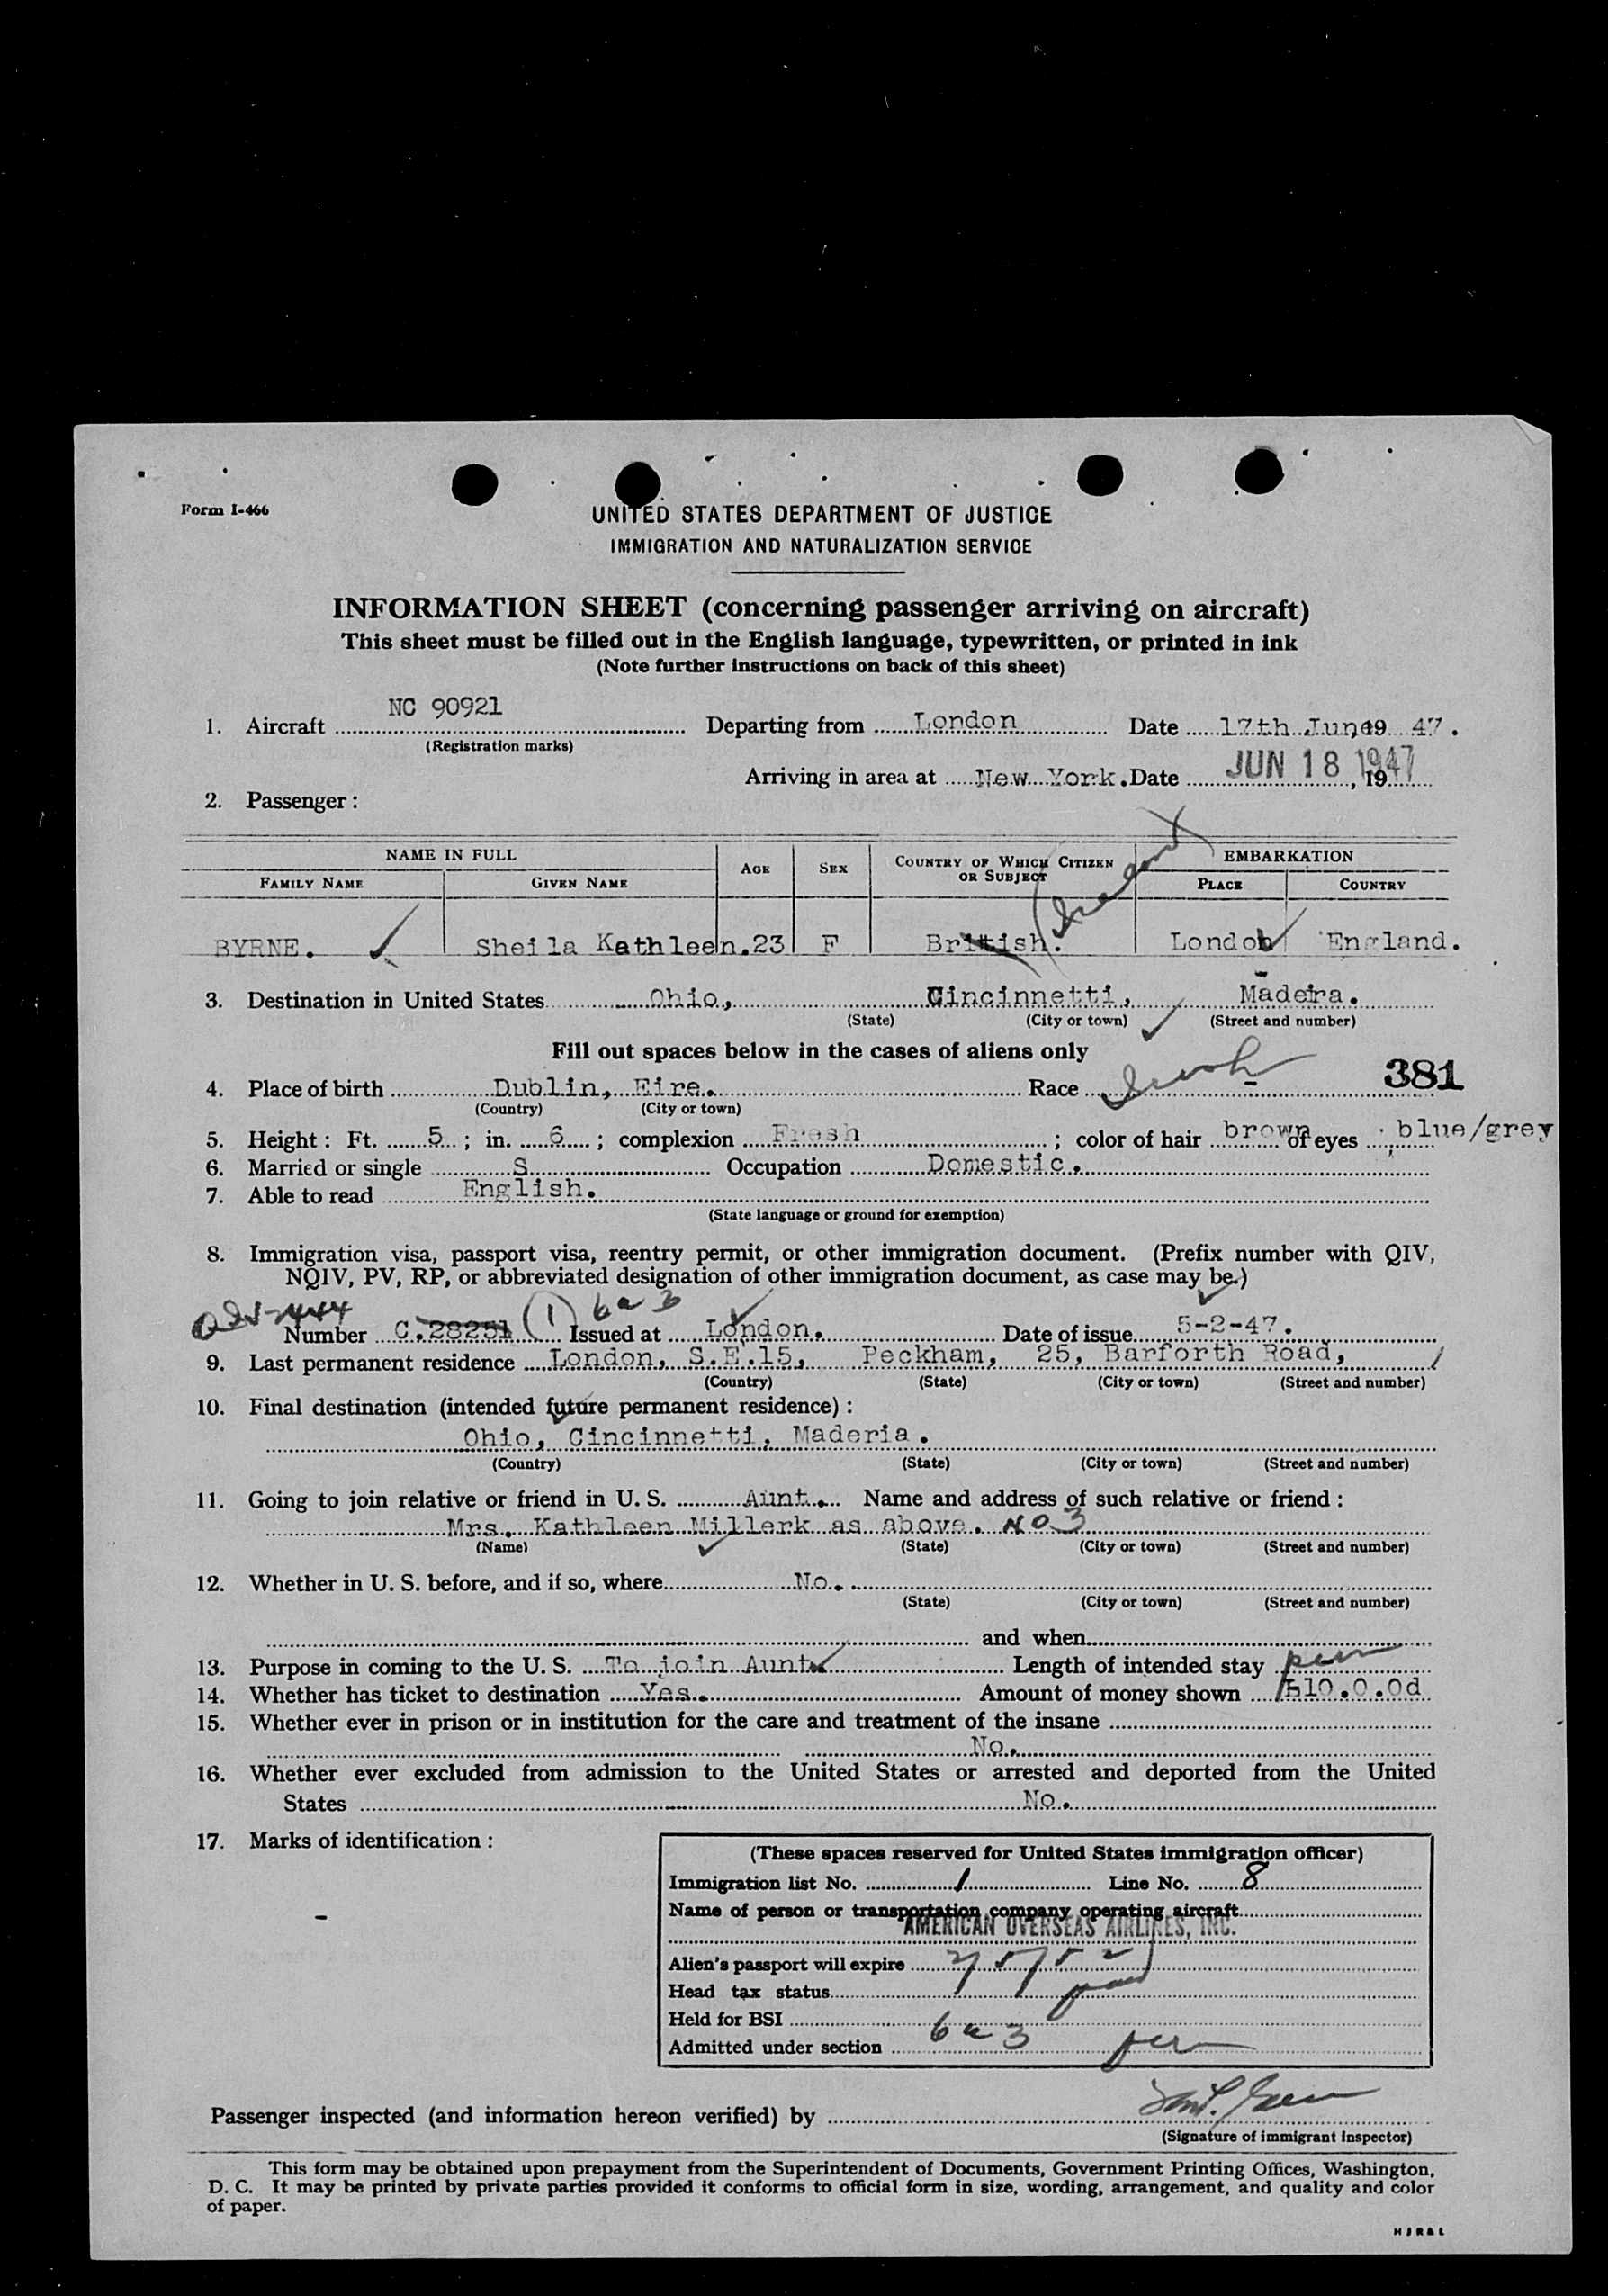 Form I-466
UNITED STATES DEPARTMENT OF JUSTICE
IMMIGRATION AND NATURALIZATION SERVICE
INFORMATION SHEET (concerning passenger arriving on aircraft)
This sheet must be filled out in the English language, typewritten, or printed in ink
(Note further instructions on back of this sheet)
NC 90921
1. Aircraft Departing from London Date 17th June 19 47.
(Registration marks)
Arriving in area at New York. Date JUN 18 1947, 19
2. Passenger:
NAME IN FULL AGE SEX COUNTRY OF WHICH CITIZEN OR SUBJECT EMBARKATION
FAMILY NAME GIVEN NAME PLACE COUNTRY
(Ireland)
BYRNE. Sheila Kathleen. 23 F British. London England.
3. Destination in United States Ohio, Cincinnetti, Madeira.
(State) (City or town) (Street and number)
Fill out spaces below in the cases of aliens only
381
4. Place of birth Dublin, Eire. Race Irish
(Country) (City or town)
5. Height: Ft. 5; in. 6; complexion Fresh; color of hair brown of eyes blue/grey
6. Married or single S Occupation Domestic.
7. Able to read English.
(State language or ground for exemption)
8. Immigration visa, passport visa, reentry permit, or other immigration document. (Prefix number with QIV,
NQIV, PV, RP, or abbreviated designation of other immigration document, as case may be.)
(1) 6 a 3
Number C.28251 Issued at London. Date of issue 5-2-47.
9. Last permanent residence London, S.E.15, Peckham, 25, Barforth Road,
(Country) (State) (City or town) (Street and number)
10. Final destination (intended future permanent residence):
Ohio, Cincinnetti, Maderia.
(Country) (State) (City or town) (Street and number)
11. Going to join relative or friend in U. S. Aunt. Name and address of such relative or friend:
Mrs. Kathleen Millerk as above. NO 3
(Name) (State) (City or town) (Street and number)
12. Whether in U. S. before, and if so, where No.
(State) (City or town) (Street and number)
and when
13. Purpose in coming to the U. S. To join Aunt. Length of intended stay perm
14. Whether has ticket to destination Yes. Amount of money shown £10.0.0d
15. Whether ever in prison or in institution for the care and treatment of the insane
No.
16. Whether ever excluded from admission to the United States or arrested and deported from the United
States No.
17. Marks of identification:
-
(These spaces reserved for United States immigration officer)
Immigration list No. 1 Line No. 8
Name of person or transportation company operating aircraft
AMERICAN OVERSEAS AIRLINES, INC.
Alien's passport will expire
Head tax status paid
Held for BSI
Admitted under section 6 a 3 per
Passenger inspected (and information hereon verified) by
(Signature of immigrant inspector)
This form may be obtained upon prepayment from the Superintendent of Documents, Government Printing Offices, Washington,
D. C. It may be printed by private parties provided it conforms to official form in size, wording, arrangement, and quality and color
of paper.
HJR&L